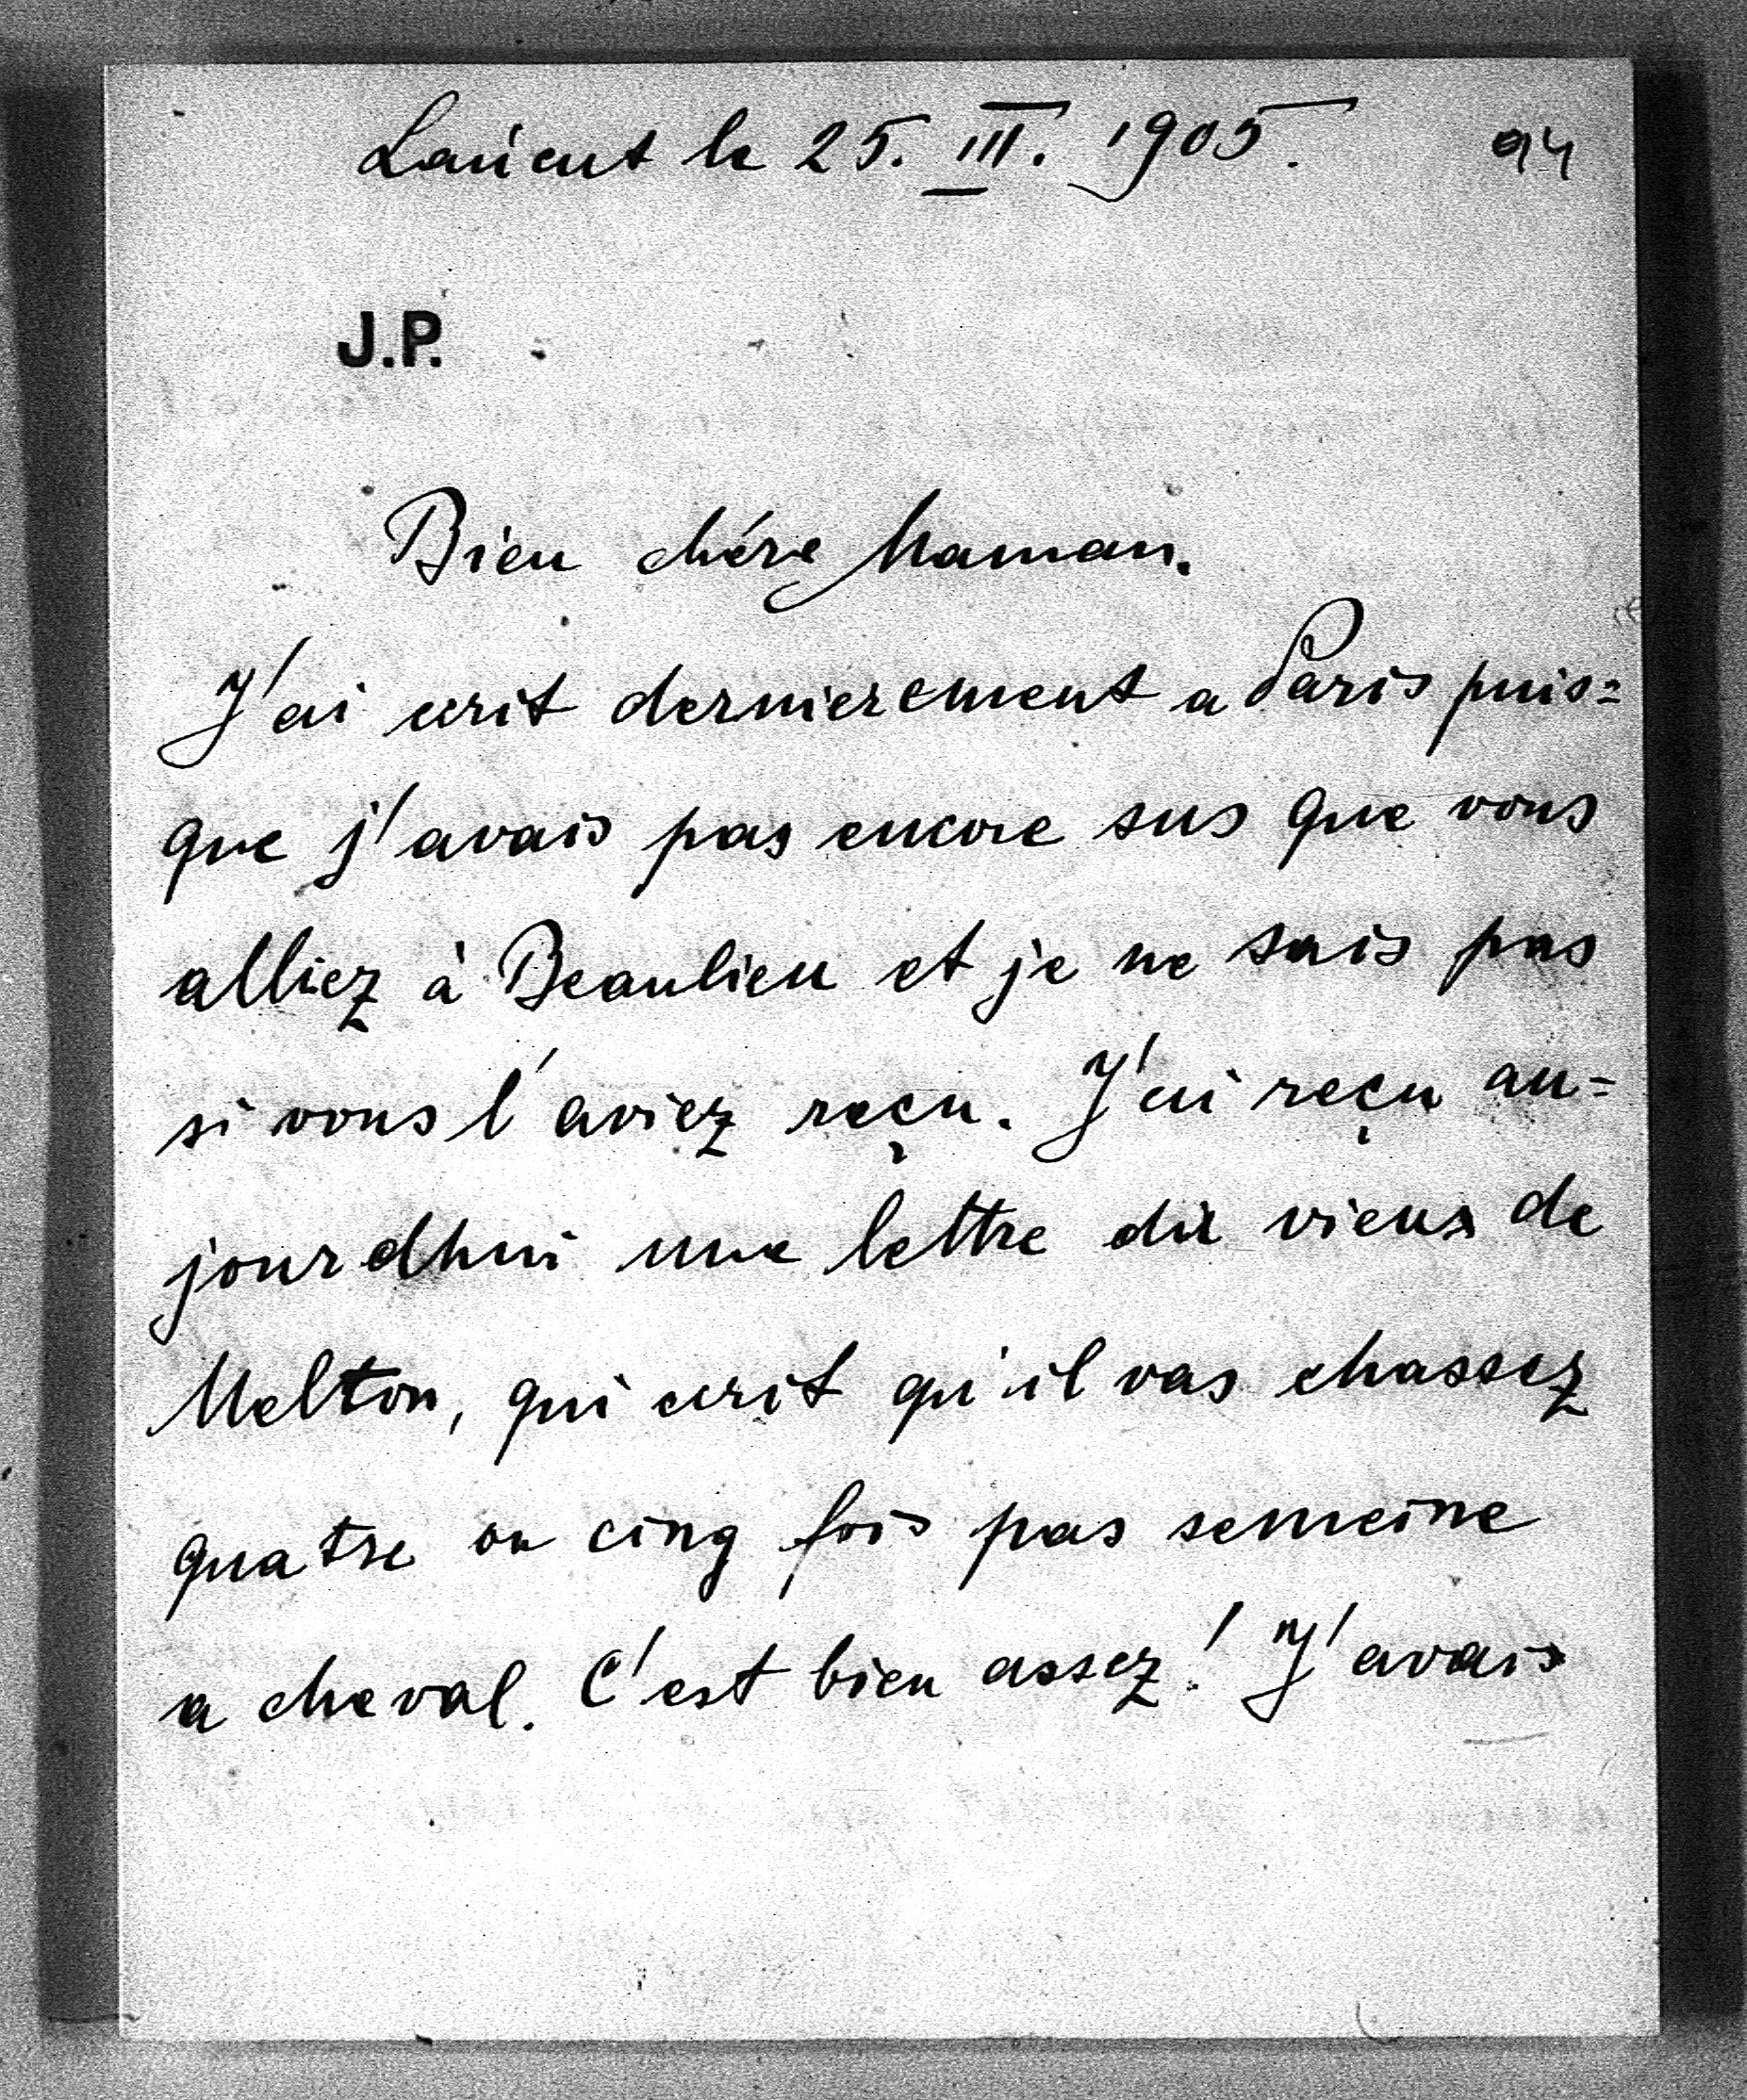 Lancut le 25. III. 1905. 94
J.P.
Bien chére Maman.
J'ai ecrit dernierement a Paris puis=
que j'avais pas encore sus que vous
alliez à Beaulieu et je ne sais pas
si vous l'aviez reçu. J'ai reçu au=
jourdhui une lettre du vieux de
Melton, qui ecrit qu'il vas chassez
quatre ou cinq fois pas semeine
a cheval. C'est bien assez! J'avais